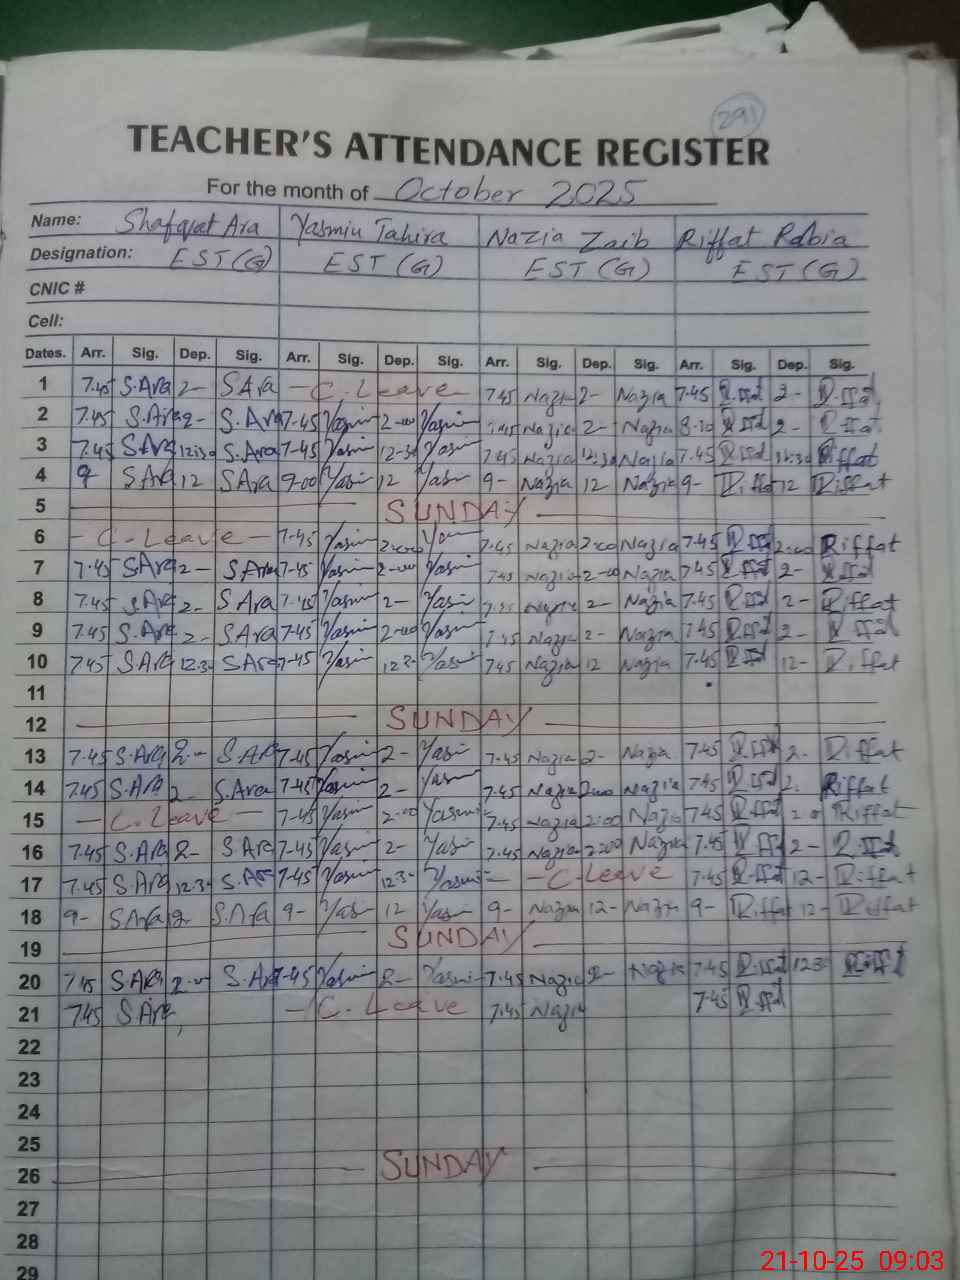 291
TEACHER'S ATTENDANCE REGISTER
For the month of October 2025
Name: Shafqat Ara Yasmin Tahira Nazia Zaib Riffat Rabia
Designation: EST (G) EST (G) EST (G) EST (G)
CNIC #
Cell:
Dates. Arr. Sig. Dep. Sig. Arr. Sig. Dep. Sig. Arr. Sig. Dep. Sig. Arr. Sig. Dep. Sig.
1 7.45 S.Ara 2- S Ara - C. Leave 7.45 Nazia 2- Nazia 7.45 Riffat 2- Riffat
2 7.45 S.Ara 2- S.Ara 7-45 Yasmin 2-00 Yasmin 7.45 Nazia 2- Nazia 8-10 Riffat 2- Riffat
3 7.45 S Ara 12:30 S.Ara 7-45 Yasmin 12-30 Yasmin 7.45 Nazia 12:30 Nazia 7.45 Riffat 12:30 Riffat
4 9 S Ara 12 S Ara 9-00 Yasmin 12 Yasmin 9- Nazia 12 Nazia 9- Riffat 12 Riffat
5 SUNDAY
6 - C. Leave - 7-45 Yasmin 2-00 7.45 Nazia 2-00 Nazia 7.45 Riffat 2-00 Riffat
7 7.45 S Ara 2- S.Ara 7-45 Yasmin 2-00 Yasmin 7.45 Nazia 2-00 Nazia 7.45 Riffat 2- Riffat
8 7.45 S.Ara 2- S Ara 7-45 Yasmin 2- Yasmin 7.45 Nazia 2- Nazia 7.45 Riffat 2- Riffat
9 7.45 S.Ara 2- S Ara 7-45 Yasmin 2-00 Yasmin 7.45 Nazia 2- Nazia 7.45 Riffat 2- Riffat
10 7.45 S Ara 12.30 S Ara 7-45 Yasmin 12.30 Yasmin 7.45 Nazia 12 Nazia 7.45 Riffat 12- Riffat
11
12 SUNDAY
13 7.45 S.Ara 2- S.Ara 7-45 Yasmin 2- Yasmin 7.45 Nazia 2- Nazia 7.45 Riffat 2- Riffat
14 7.45 S.Ara 2- S.Ara 7-45 Yasmin 2- Yasmin 7.45 Nazia 2-00 Nazia 7.45 Riffat 2. Riffat
15 - C. Leave - 7-45 Yasmin 2-00 Yasmin 7.45 Nazia 2:00 Nazia 7.45 Riffat 2 Riffat
16 7.45 S.Ara 2- S Ara 7-45 Yasmin 2- Yasmin 7.45 Nazia 2:00 Nazia 7.45 Riffat 2- Riffat
17 7.45 S.Ara 12.30 S.Ara 7-45 Yasmin 12.30 Yasmin - C. Leave 7.45 Riffat 12- Riffat
18 9- S Ara 2- S.Ara 9- Yasmin 12 Yasmin 9- Nazia 12- Nazia 9- Riffat 12- Riffat
19 SUNDAY
20 7.45 S Ara 2-0 S.Ara 7-45 Yasmin 2- Yasmin 7.45 Nazia 2- Nazia 7.45 Riffat 12 30 Riffat
21 7.45 S Ara - C. Leave 7.45 Nazia 7.45 Riffat
22
23
24
25
26 SUNDAY
27
28
29
21-10-25 09:03